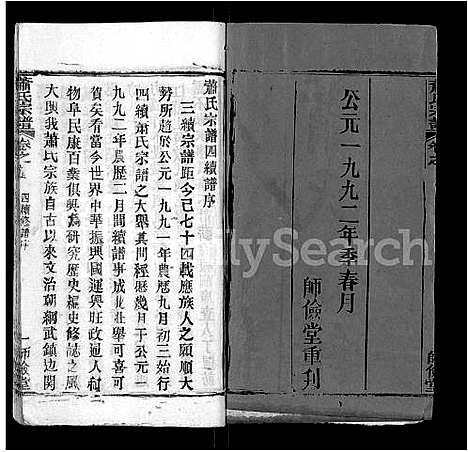 公元一九九二年季春月
師儉堂重刊
師儉堂
蕭氏宗譜四續譜序
三續宗譜距今已七十四載應族人之願順大
勢所趨於公元一九九一年農歷九月初三始行
四續蕭氏宗譜之大舉其間經歷幾月于公元一
九九二年農歷二月間續譜事成此壯舉可喜可
賀矣看當今世界中華振興國運興旺政通人和
物阜民康百業俱興為研究歷史編史修志之風
大興我蕭氏宗族自古以來文治朝綱武鎮边関
蕭氏宗譜
卷之
四續修譜序
一
師儉堂
FamilySearch